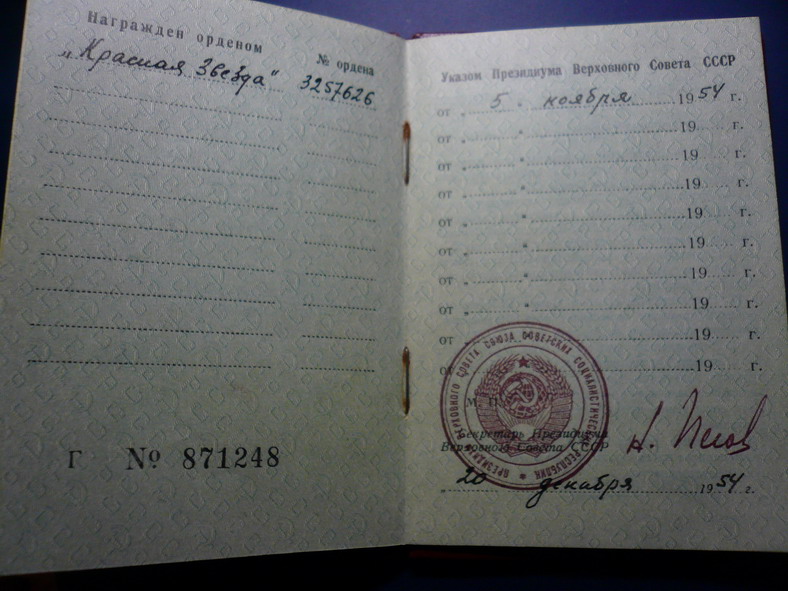 Награжден орденом
№ ордена
„Красная Звезда“ 3257626
Г № 871248
Указом Президиума Верховного Совета СССР
от „ 5 “ ноября 1954 г.
от „ “ 19 г.
от „ “ 19 г.
от „ “ 19 г.
от „ “ 19 г.
от „ “ 19 г.
от „ “ 19 г.
от „ “ 19 г.
от „ “ 19 г.
от „ “ 19 г.
М. П.
ПРЕЗИДИУМ ВЕРХОВНОГО СОВЕТА СОЮЗА СОВЕТСКИХ СОЦИАЛИСТИЧЕСКИХ РЕСПУБЛИК
Секретарь Президиума
Верховного Совета СССР
Н. Пегов
20 декабря 1954 г.